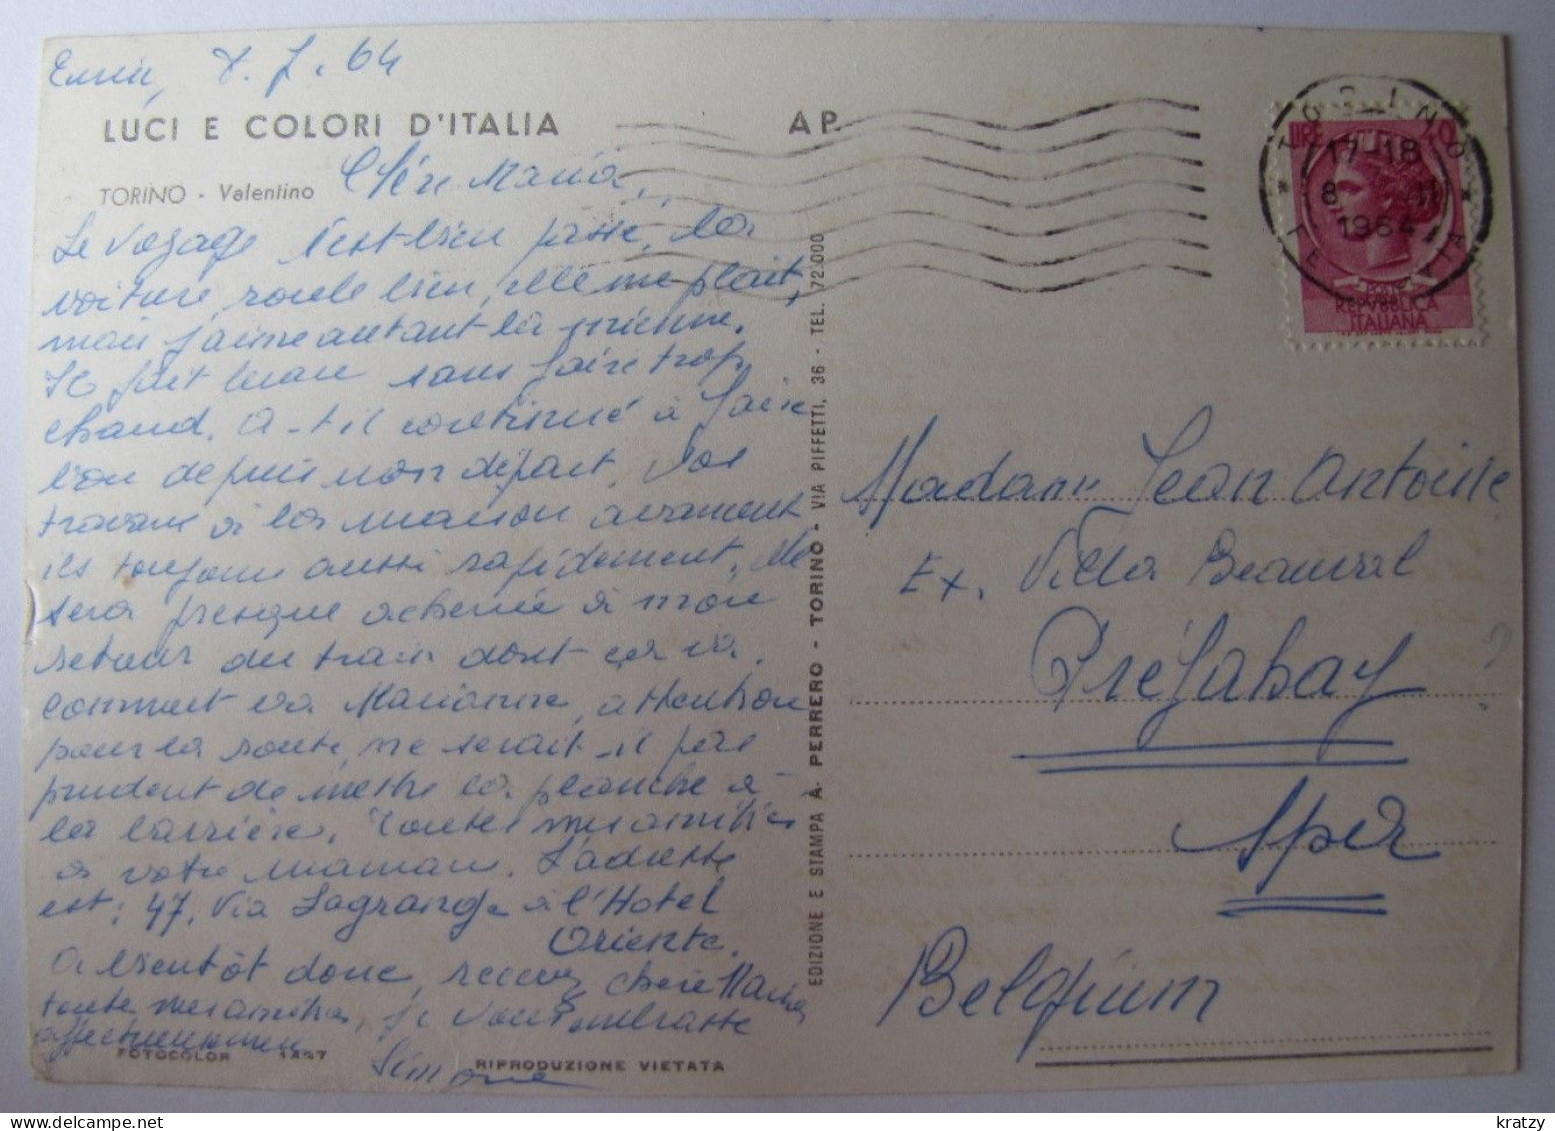 7. 7. 64
LUCI E COLORI D'ITALIA
AP.
TORINO - Valentino
Chère Maria,
Le voyage s'est bien passé, la
voiture roule bien, elle me plait,
mais j'aime autant la mienne.
Il fait beau sans faire trop
chaud. A-t-il continué à faire
bon depuis mon départ, les
travaux à la maison avancent
ils toujours aussi rapidement,
sera presque achevée à mon
retour du train dont ça va.
comment va Marianne, attention
pour la route, ne serait-il pas
prudent de mettre la planche à
la barrière. Toutes mes amitiés
à votre maman. L'adresse
est: 47. Via Lagrange à l'Hotel
Oriente.
A bientôt donc, recevez chère Maria
toutes mes amitiés, je vous embrasse
affectueusement
Simone
FOTOCOLOR
RIPRODUZIONE VIETATA
EDIZIONE E STAMPA A. PERRERO - TORINO - VIA PIFFETTI, 36 - TEL. 72.000
TORINO
17-18
8 II
1964
LIRE 40
REPVBBLICA
ITALIANA
Madame Jean Antoine
Ex. Villa Beauval
Préfahay
?
Spa
Belgium
kratzy